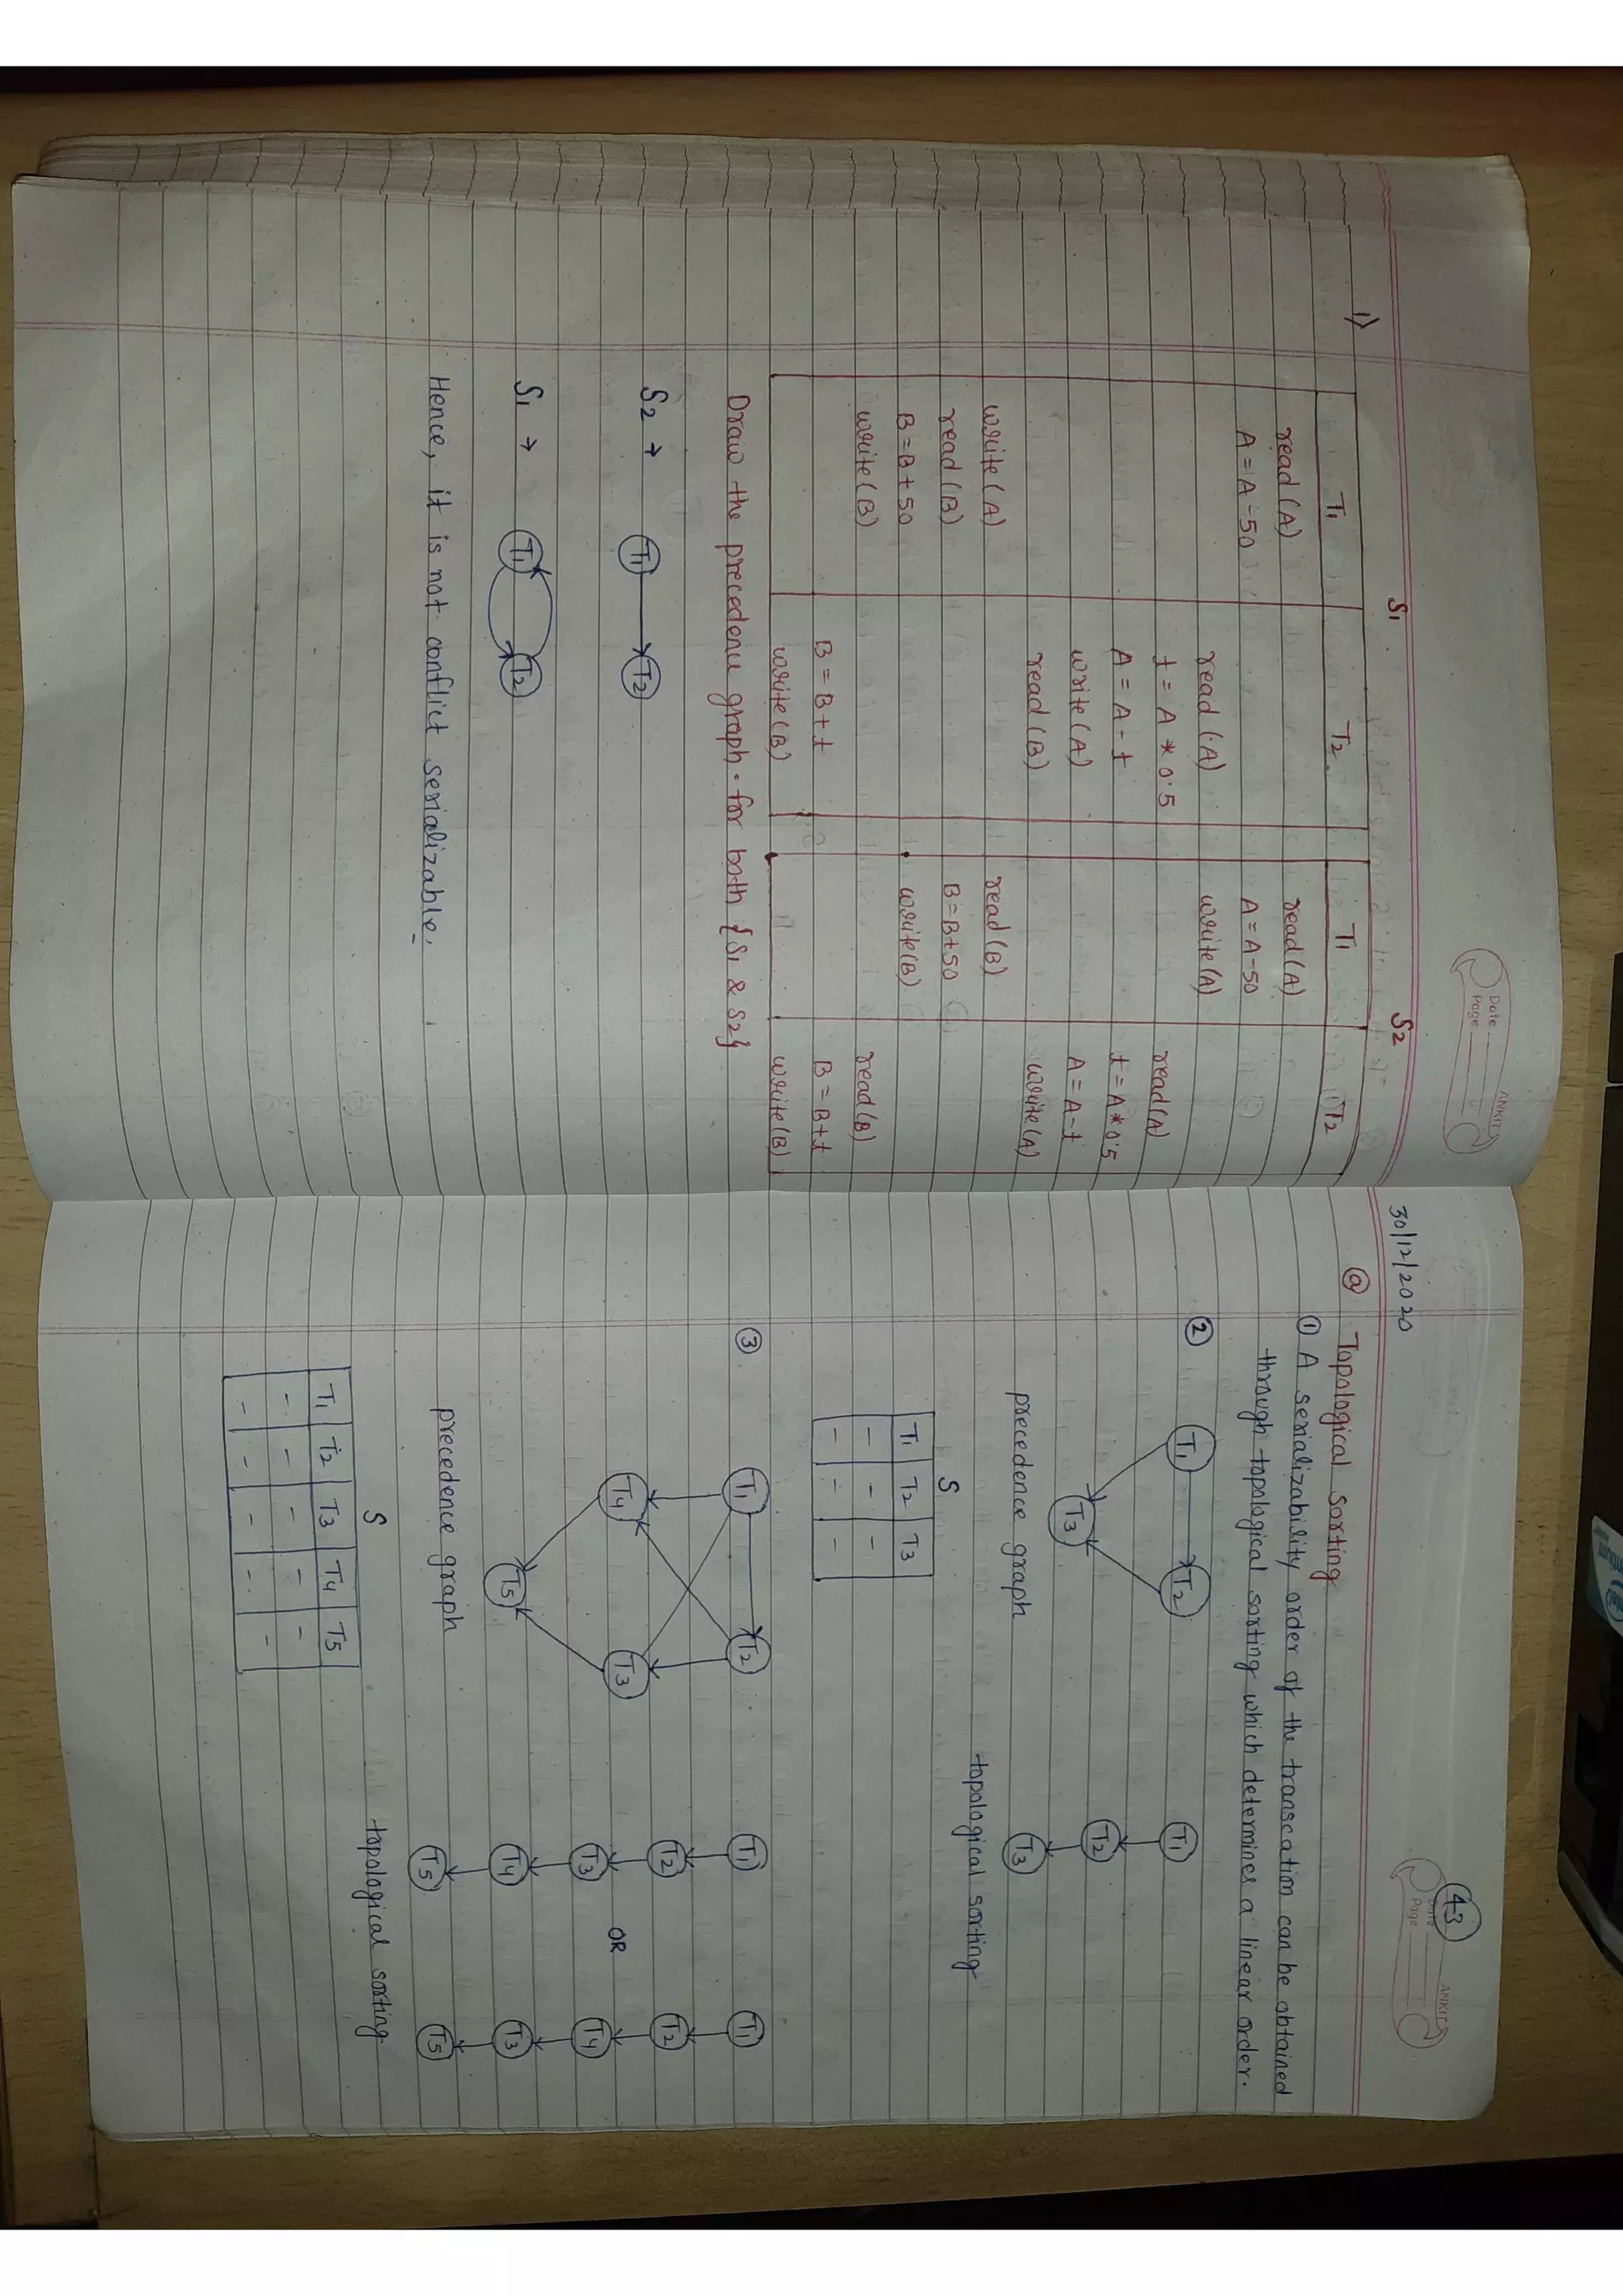 Date
Page
ANKIT
S1 S2
1)
T1 T2 T1 T2
read(A) read(A)
A=A-50 A=A-50
read(A) write(A)
t=A*0.5 read(A)
A=A-t t=A*0.5
write(A) A=A-t
read(B) write(A)
write(A) read(B)
read(B) B=B+50
B=B+50 write(B)
write(B) read(B)
B=B+t B=B+t
write(B) write(B)
Draw the precedenu graph. for both {S1 & S2}
S2 → T1 T2
S1 → T1 T2
Hence, it is not conflict serializable.
43
Date
Page
ANKIT
30/12/2020
@ Topological sorting
① A serializability order of the transcation can be obtained
through topological sorting which determines a linear order.
② T1 T2 T1
T3 T2
T3
precedence graph
topological sorting
S
T1 T2 T3
- - -
- - -
③ T1 T2 T1 T1
T2 T2
T4 T3 T3 OR T4
T5 T4 T3
T5 T5
precedence graph
topological sorting
S
T1 T2 T3 T4 T5
- - - - -
- - - - -